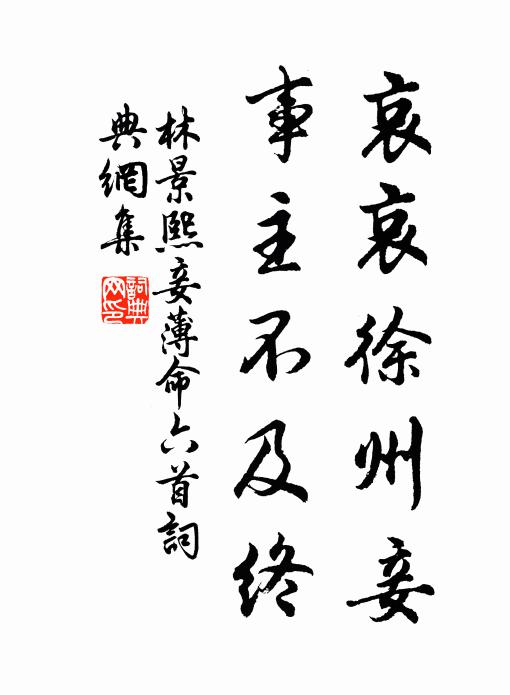 哀哀徐州妾
事主不及終
林景熙妾薄命六首詞
典網集
詞典網印